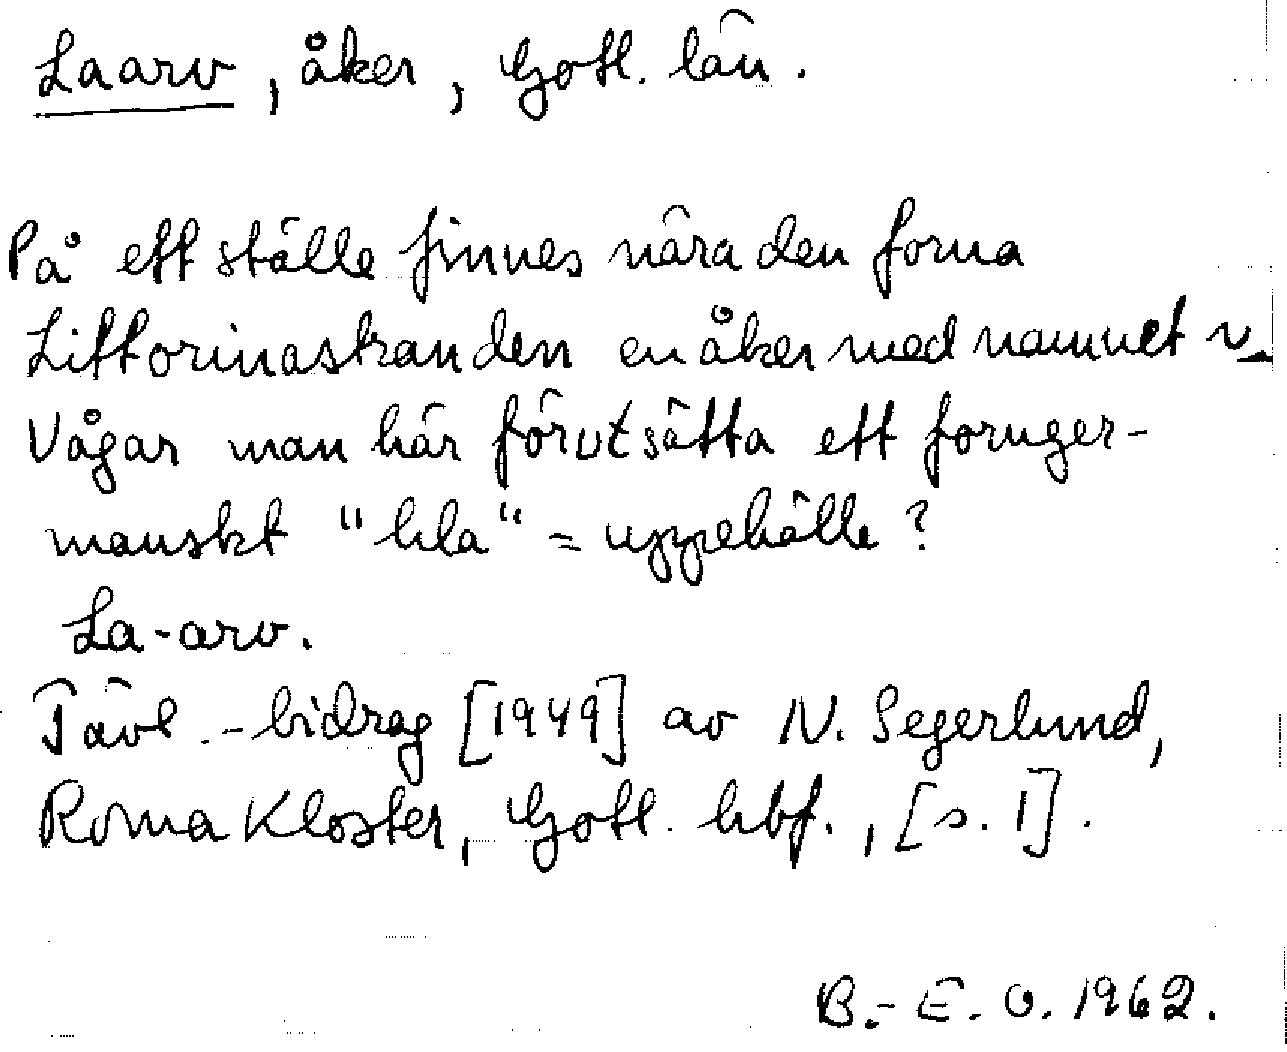 Laarv, åker, Gotl. län.
På ett ställe finnes nära den forna
Littorinastranden en åker med namnet ~.
Vågar man här förutsätta ett fornger-
manskt "hla" = uppehålle?
La-arv.
Tävl.-bidrag [1949] av N. Segerlund,
Roma Kloster, Gotl. hbf., [s. 1].
B.-E. O. 1962.